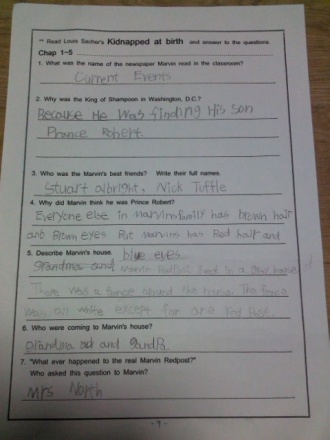 ** Read Louis Sachar's Kidnapped at birth and answer to the questions.
Chap 1~5
1. What was the name of the newspaper Marvin read in the classroom?
Current Events
2. Why was the King of Shampoon in Washington, D.C.?
Because He Was finding His son
Prance Robert.
3. Who was the Marvin's best friends? Write their full names.
Stuart albright, Nick Tuffle
4. Why did Marvin think he was Prince Robert?
Everyone else in Marvinsfamily has brown hair
and Brown eyes But marvins has Red hair and
5. Describe Marvin's house. blue eyes..
and Marvin Redpost lived in a
There was a fence around the house. The fence
was all white except for one red Post.
6. Who were coming to Marvin's house?
and
7. "What ever happened to the real Marvin Redpost?"
Who asked this question to Marvin?
Mrs North
- 1 -